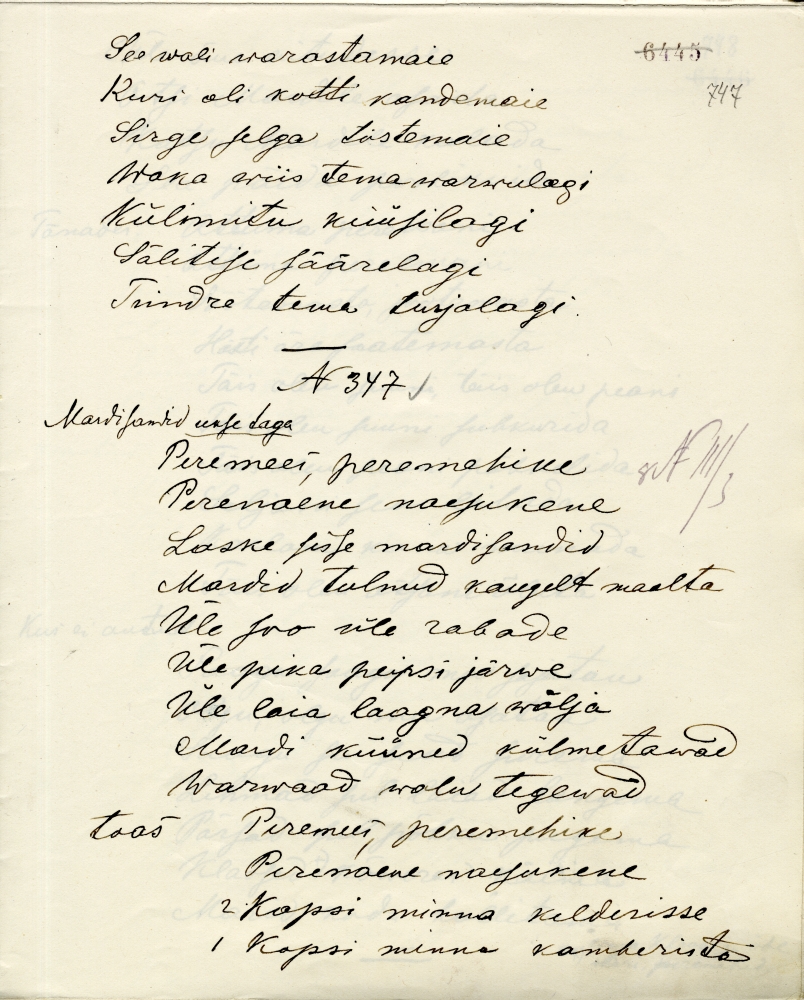 6445
747
See wali warastamaie
Kuri oli kotti kandemaie
Sirge selga tõstemaie
Waka wiis tema warwulagi
Külimitu küüsilagi
Sälitise säärelagi
Tündre tema turjalagi.
N 347
Mardisandid ukse taga
Peremees, peremehike
Perenaene naesukene
Laske sisse mardisandid
Mardid tulnud kaugelt maalta
Üle soo üle rabade
Üle pika peipsi järwe
Üle laia laagna wälja
Mardi küüned külmetawad
Warwaad walu tegewad
toas Peremees, peremehike
Perenaene naesukene
2 Kopsi minna kelderisse
1 Kopsi minna kamberista